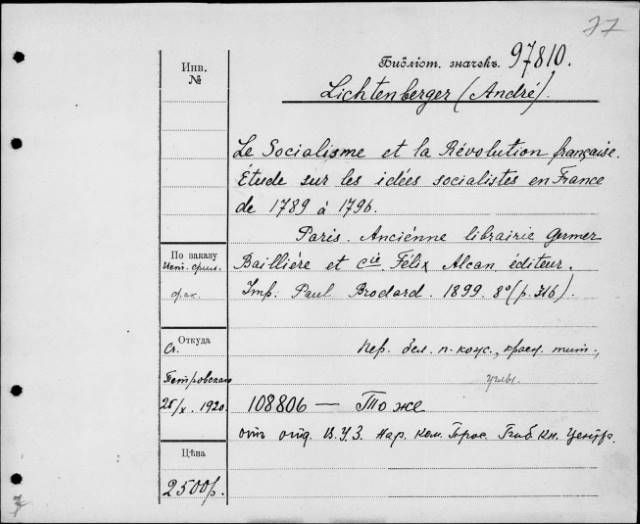 77
Библіот. значекъ. 97810.
Инв.
№
Lichtenberger (André).
Le Socialisme et la Révolution française.
Étude sur les idées socialistes en France
de 1789 à 1796.
Paris. Anciénne librairie Germer
Baillière et Cie Félix Alcan, éditeur.
Imp. Paul Brodard. 1899. 8° (p. 316).
По заказу
Ист. фил.
фак.
Откуда
От
Петровского
25/X. 1920.
Пер. бел. п. кож., красн. тит.,
углы.
108806 — То же
от отд. В.У.З. Нар. Ком. Прос.
Цѣна
2500р.